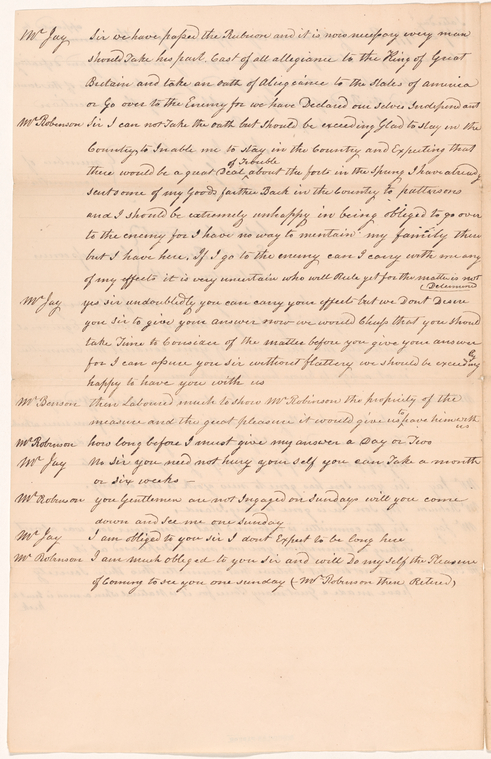 Mr Jay Sir we have passed the Rubicon and it is now necessary every man
should Take his part, Cast of all allegiance to the King of Great
Britain and take an oath of Aliegeance to the States of America
or Go over to the Enemy for we have Declared our Selves Independent
Mr Robinson Sir I can not Take the oath but should be exceeding Glad to stay in the
Country to Inable me to stay in the Country and Expecting that
there would be a great Deal of Trouble about the forts in the Spring I have already
sent some of my Goods farther Back in the Country to pattersons
and I should be extremely unhappy in being obliged to go over
to the enemy for I have no way to mentain my family there
but I have here, If I go to the enemy can I carry with me any
of my effects it is very uncertain who will Rule yet for the matter is not
Determined
Mr Jay yes sir undoubtedly you can carry your effects but we Dont Desire
you sir to give your answer now we would Chuss that you should
take Time to Consider of the matter before you give your answer
for I can assure you sir without flattery we should be exceedingly
happy to have you with us
Mr Benson then Laboured much to show Mr Robinson the propriety of the
measure and the great pleasure it would give us to have him with
us
Mr Robinson how long before I must give my answer a Day or Two
Mr Jay No Sir you need not hury your self you can Take a month
or six weeks —
Mr Robinson you Gentlemen are not Ingaged on Sundays will you come
down and See me one Sunday
Mr Jay I am obliged to you Sir I dont Expect to be long here
Mr Robinson I am much obliged to you Sir and will Do my self the Pleasure
of Coming to see you one sunday (— Mr Robinson then Retired)